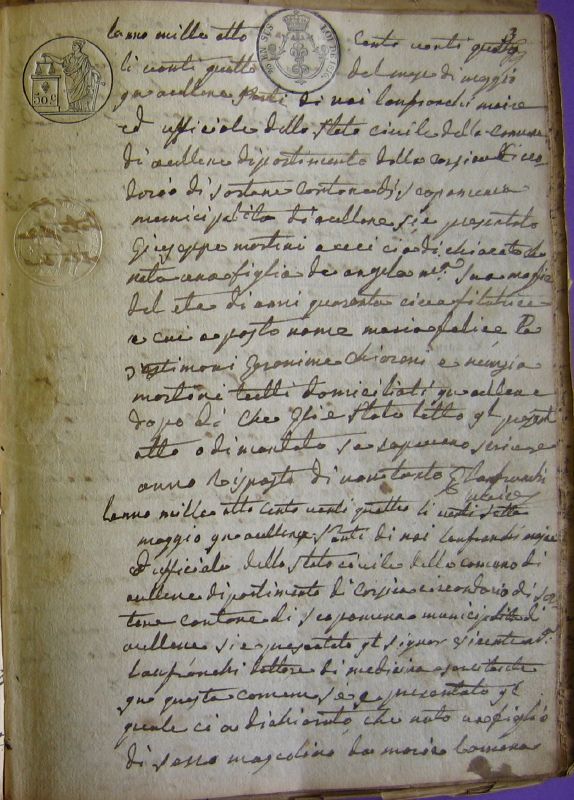 3
50 c
lanno mille otto cento venti quatro
li venti quatro del mese di maggio
qu aullene avanti di noi lanfranchi maire
ed ufficiale dello stato civile della comune
di aullene dipartimento della corsica circon
dario di sartene cantone di scopamena
municipalita di aullene si e presentato
Giuseppe martini a ci dichiarato
nata una figlia da angela m.ª sua moglie
del eta di anni quaranta circa filatrice
e cui a posto nome maria felice
testimoni Geronimo Chiaroni e
martini tutti domiciliati qu aullene e
dopo di che gli e stato letto gl present
atto o dimandato se sapevano scrivere
anno risposto di non Lanfranchi
maire
lanno mille otto cento venti quattro li venti sette
maggio qu aullene avanti di noi lanfranchi maire
ed uffiziale dello stato civile della comune di
aullene dipartimento di Corsica circondario di sar
tene cantone di scopamena municipalita di
aullene si e presentato gl signor
Lanfranchi dottore di medicina
qu questa comune si e presentato gl
quale ci a dichiarato che nato un figlio
di sesso mascolino da maria